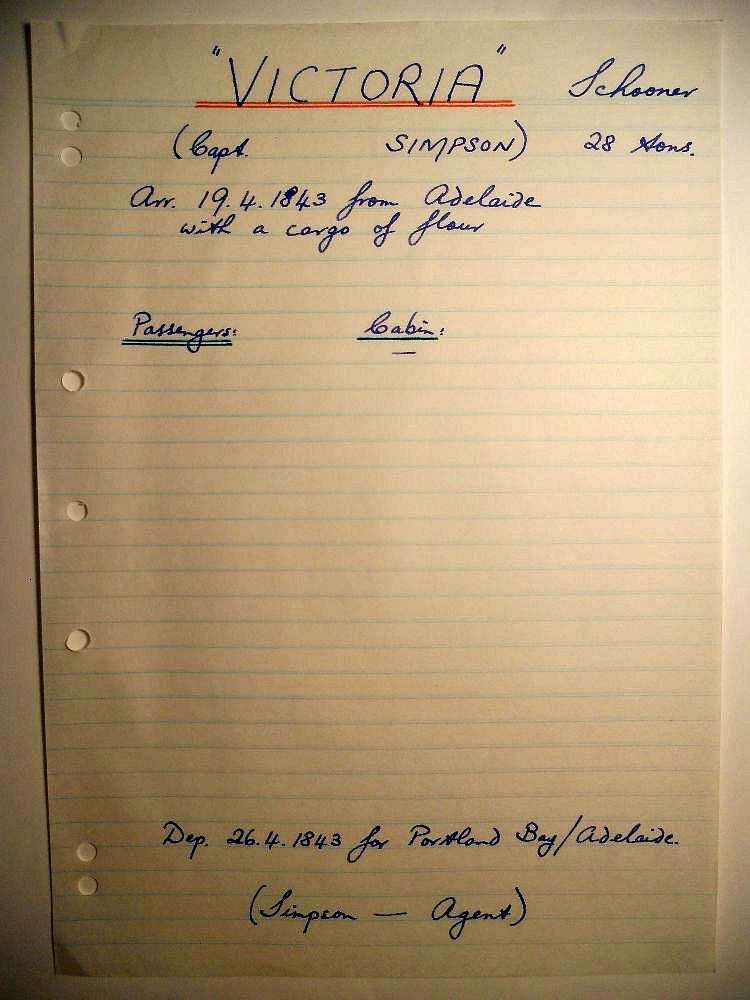 "VICTORIA" Schooner
(Capt. SIMPSON) 28 tons.
Arr. 19.4.1843 from Adelaide
with a cargo of flour
Passengers: Cabin:
—
Dep. 26.4.1843 for Portland Bay/Adelaide.
(Simpson — Agent)